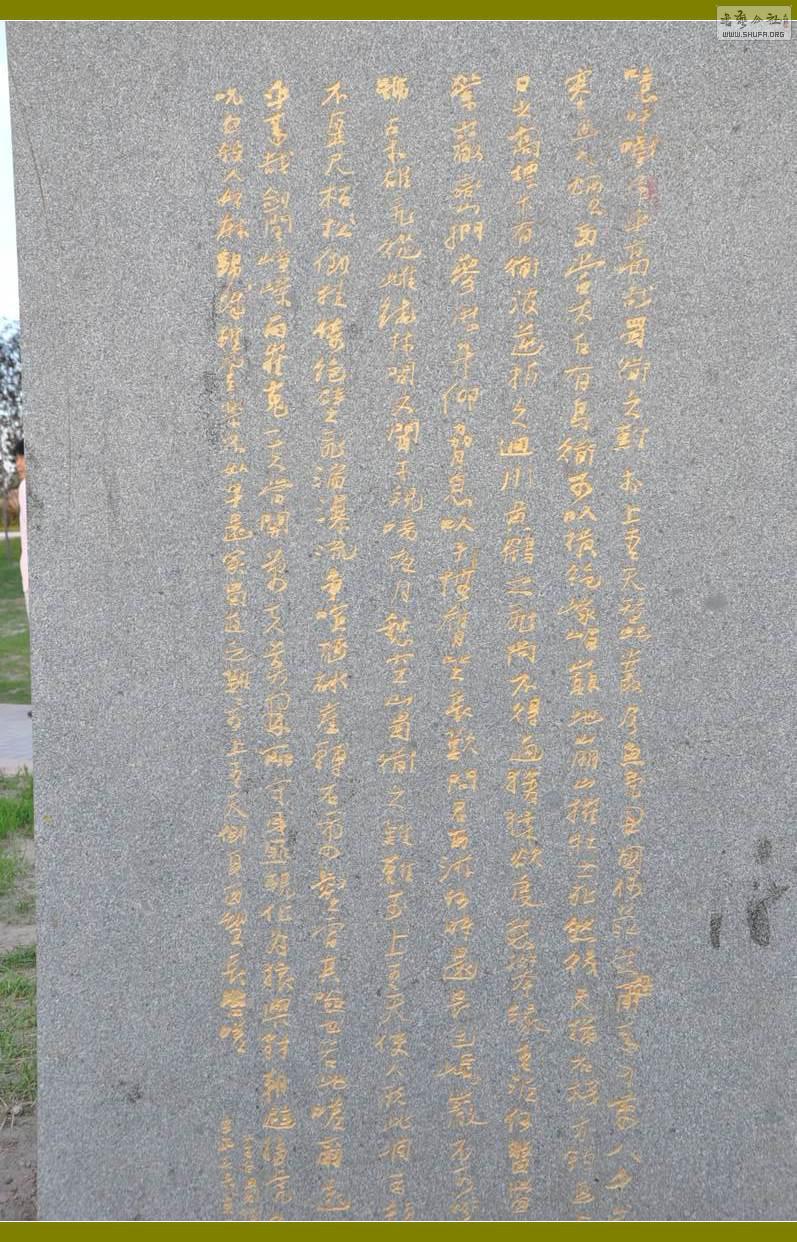 噫吁嚱危乎高哉蜀道之難難於上青天蠶叢及魚鳧開國何茫然爾来四萬八千
塞通人煙西當太白有鳥道可以橫絕峨嵋巔地崩山摧壯士死然後天梯石棧方鉤連
日之高標下有衝波逆折之迴川黃鶴之飛尚不得過猿猱欲度愁攀緣青泥何盤盤
縈巖巒捫參歷井仰脅息以手撫膺坐長歎問君西遊何時還畏途巉巖不可攀
號古木雄飛從雌繞林間又聞子規啼夜月愁空山蜀道之難難於上青天使人聽此凋朱顏
不盈尺枯松倒挂倚絕壁飛湍瀑流爭喧豗砯崖轉石萬壑雷其險也若此嗟爾遠
乎来哉劍閣崢嶸而崔嵬一夫當關萬夫莫開所守或匪親化為狼與豺朝避猛虎
吮血殺人如麻錦城雖云樂不如早還家蜀道之難難於上青天側身西望長咨嗟
书法公社
WWW.SHUFA.ORG